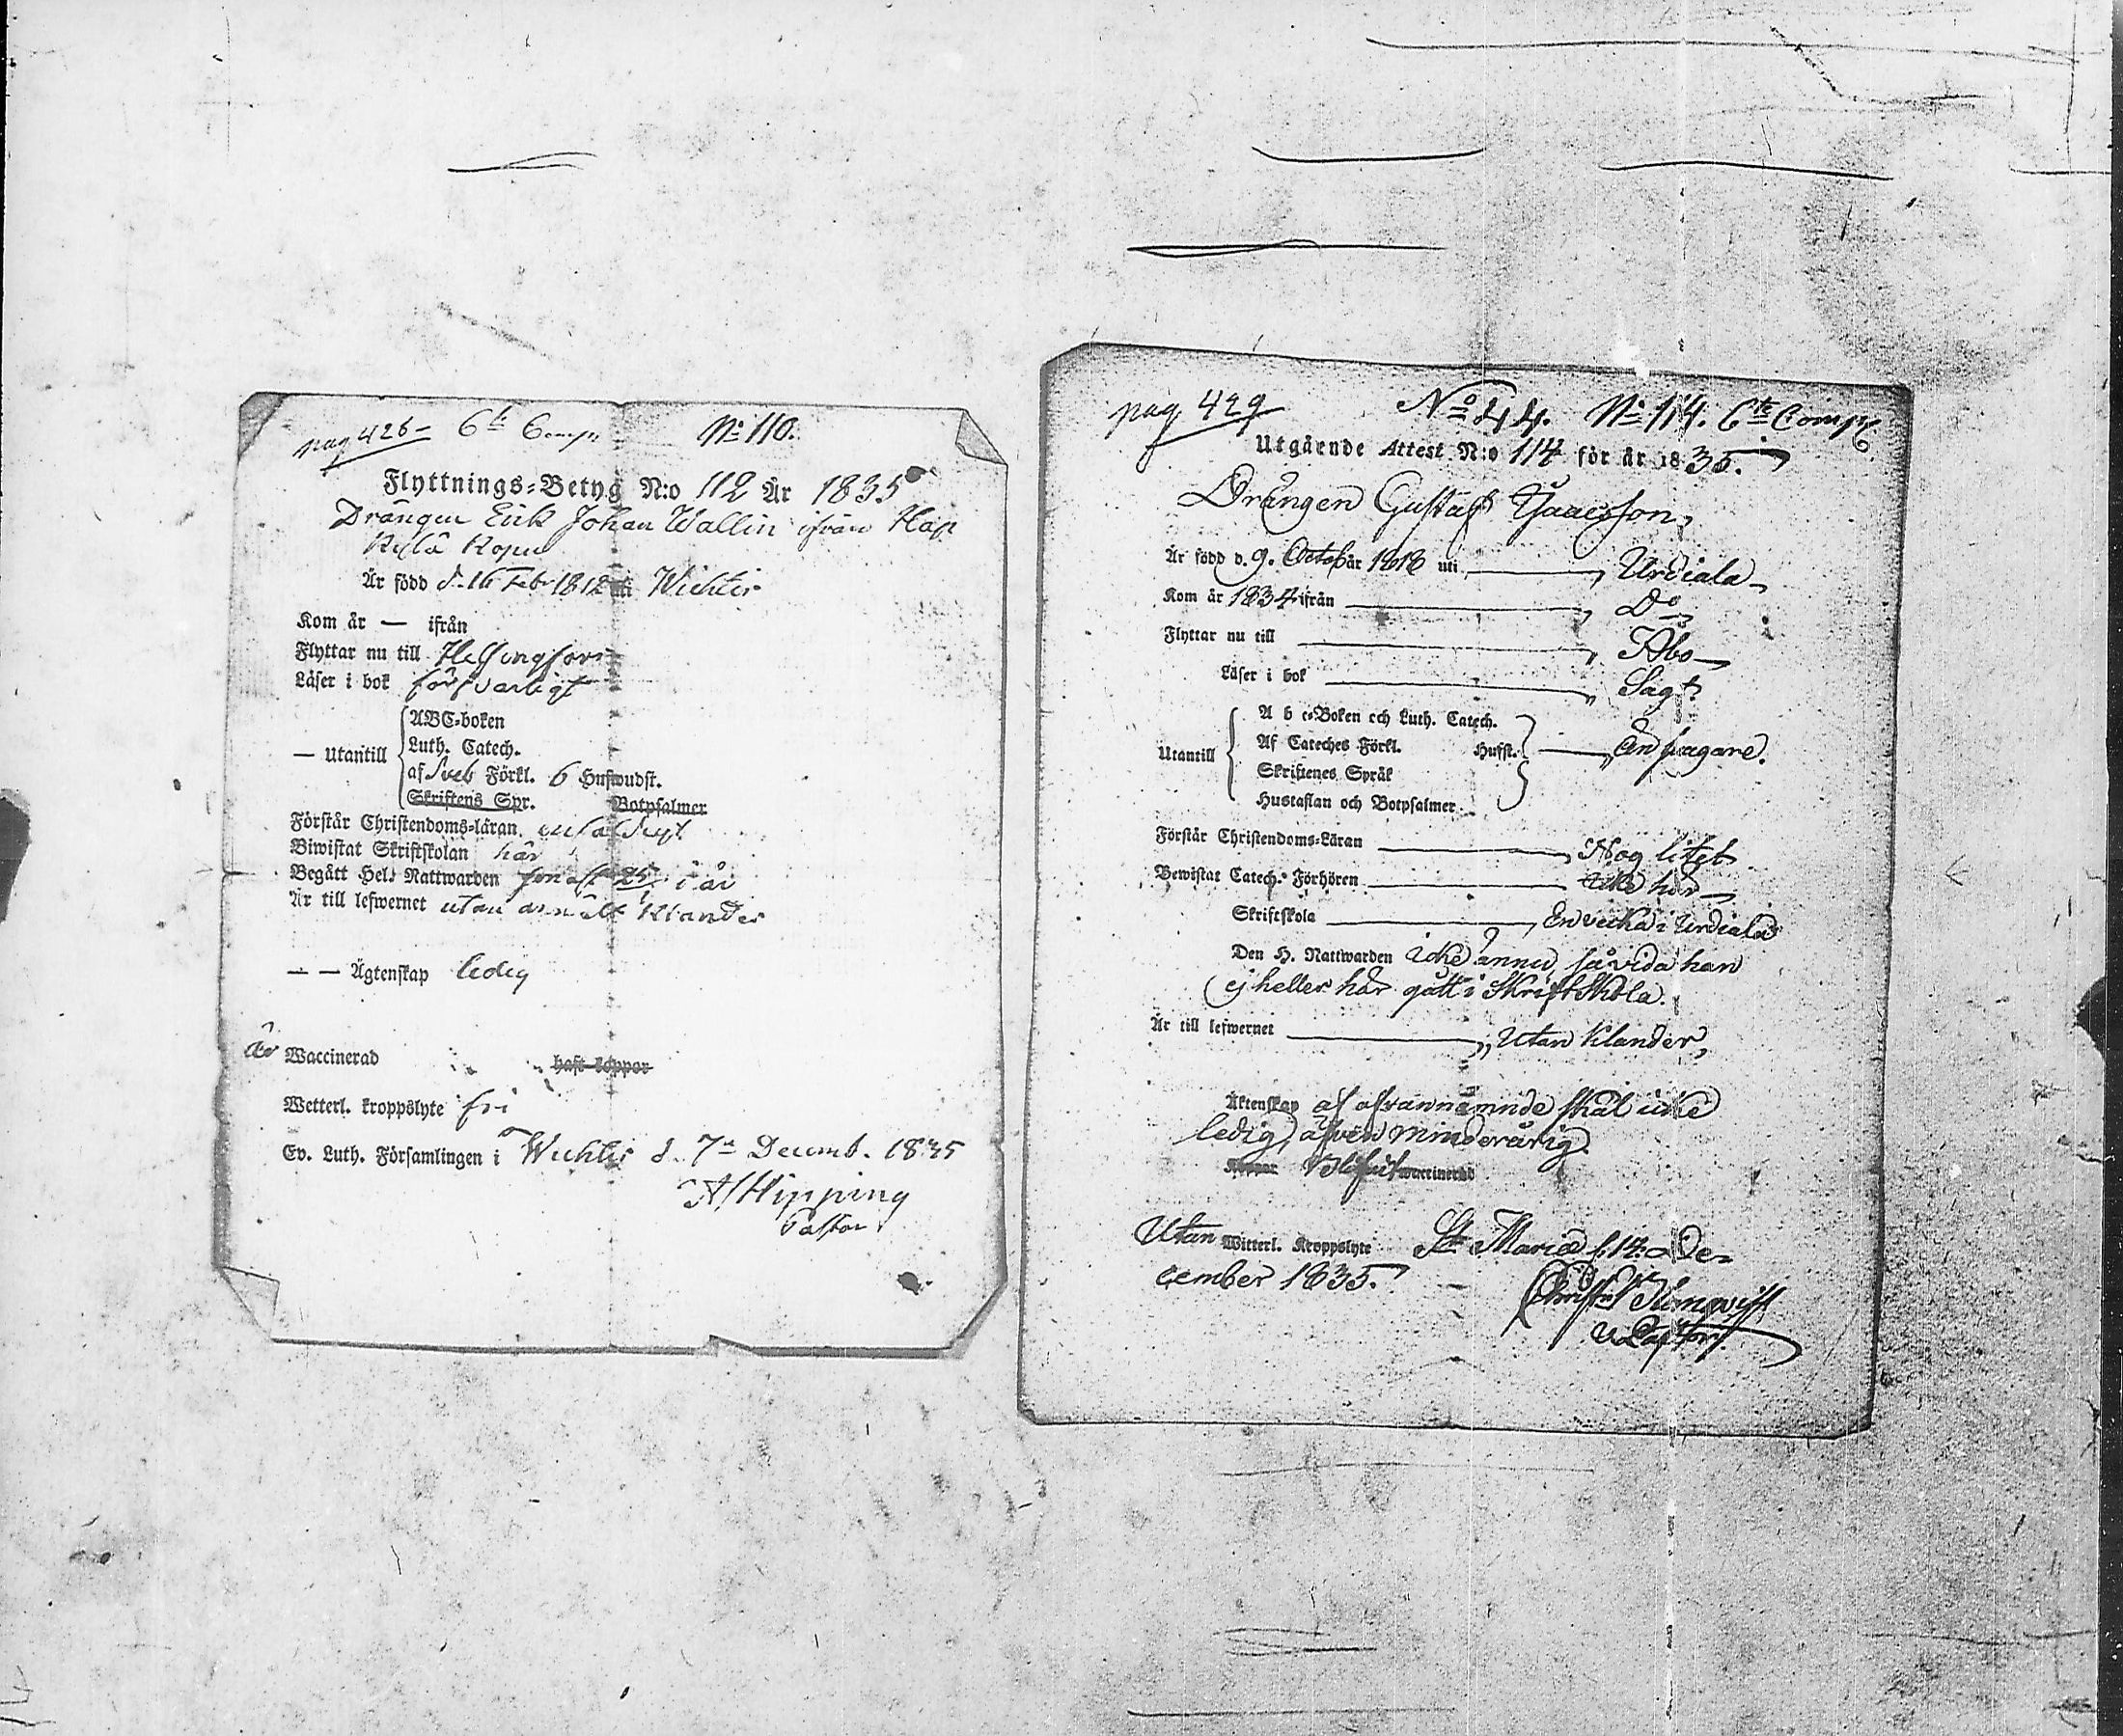 pag 426 6te Comp. No 110.
Flyttnings-Betyg N:o 112 År 1835
Drängen Erik Johan Wallin ifrån
Är född d. 16 Feb 1812 uti Wichtis
Kom år — ifrån
Flyttar nu till Helsingfors
Läser i bok försvarligt
— Utantill
ABC-boken
Luth. Catech.
af Sveb Förkl. 6 Hufwudst.
Skriftens Spr. Botpsalmer
Förstår Christendoms-läran
Biwistat Skriftskolan här
Begått Hel. Nattwarden 25 i år
Är till lefwernet utan anmält klander
— — Ägtenskap ledig
är Waccinerad haft koppor
Wetterl. kroppslyte fri
Ev. Luth. Församlingen i Wichtis d. 7de Decemb. 1835
A J Hipping
Pastor
pag 429 No 44. No 114. 6te Comp
Utgående Attest N:o 114 för år 1835.
Drängen Gustaf Isaacsson,
Är född d. 9. Octob år 1818 uti Urdiala
Kom år 1834 ifrån Do
Flyttar nu till Åbo
Läser i bok Sagt
Utantill
A b c-Boken och Luth. Catech.
Af Cateches Förkl. Hufst.
Skriftenes Språk
Hustaflan och Botpsalmer
En svagare.
Förstår Christendoms-Läran Nog litet
Bewistat Catech. Förhören icke här
Skriftskola En vecka i Urdiala
Den H. Nattwarden icke ännu, såvida han
ej heller här gått i Skriftskola.
Är till lefwernet Utan klander,
Äktenskap af ofvannämnde skäl icke
ledig, äfven minderårig.
Koppor Blifvit waccinerad
Utan Witterl. Kroppslyte St Mariæ d. 14 De-
cember 1835.
v. Pastor.